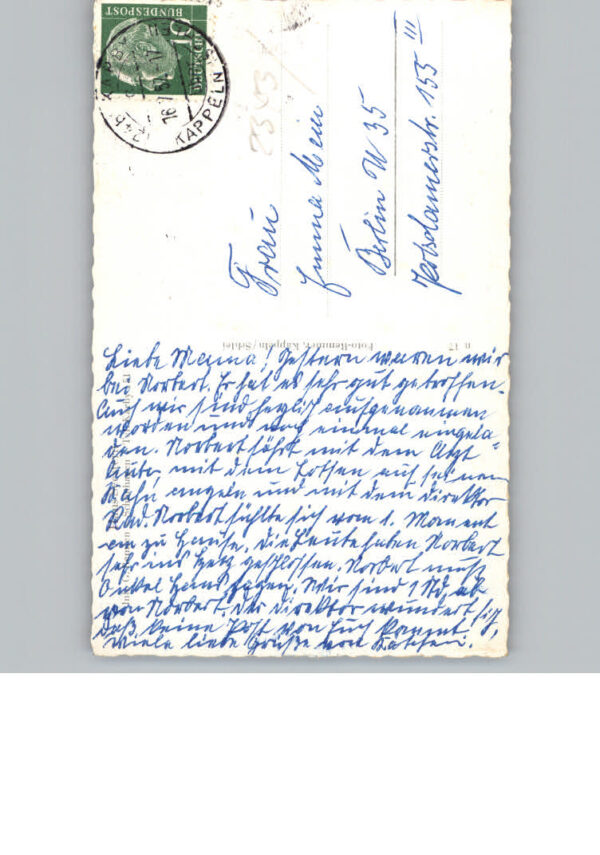 Liebe Mama! Gestern waren wir
bei Norbert. Er hat es sehr gut getroffen.
Auch wir sind herzlich aufgenommen
worden und noch einmal eingela-
den. Norbert fährt mit dem Arzt
Auto, mit dem Lotsen auf seinem
Kahn angeln und mit dem Direktor
Rad. Norbert fühlte sich vom 1. Moment
an zu Hause. Die Leute haben Norbert
sehr ins Herz geschlossen. Norbert muß
Onkel Hans sagen. Wir sind 1 Std. ab
von Norbert. Der Direktor wundert sich,
daß keine Post von Euch kommt.
Viele liebe Grüße von Kätchen.
Frau
Emma Mein
Berlin W 35
Potsdamerstr. 155 III
DEUTSCHE
BUNDESPOST
10
KAPPELN
Foto-Remmer, Kappeln/Schlei
n 17